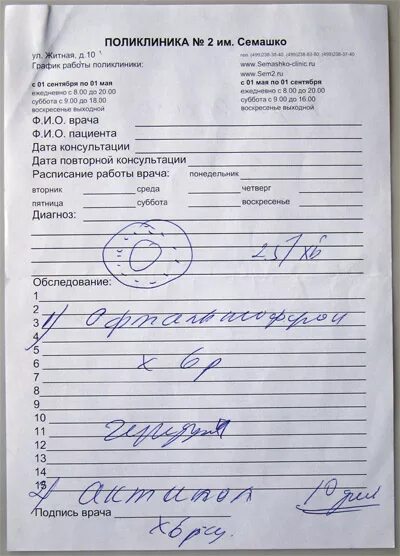 ПОЛИКЛИНИКА № 2 им. Семашко
ул. Житная, д.10
График работы поликлиники:
тел. (499)238-38-40, (499)238-83-80, (499)238-37-40
www.Semashko-clinic.ru
www.Sem2.ru
с 01 сентября по 01 мая
ежедневно с 8.00 до 20.00
суббота с 9.00 до 18.00
воскресенье выходной
с 01 мая по 01 сентября
ежедневно с 8.00 до 20.00
суббота с 9.00 до 16.00
воскресенье выходной
Ф.И.О. врача
Ф.И.О. пациента
Дата консультации
Дата повторной консультации
Расписание работы врача: понедельник
вторник среда четверг
пятница суббота воскресенье
Диагноз:
Обследование:
1
2
3 1) Офтальмоферон
4
5
6 х 6р
7
8
9
10
11
12
13
14
15 2) актипол 10 дн
Подпись врача